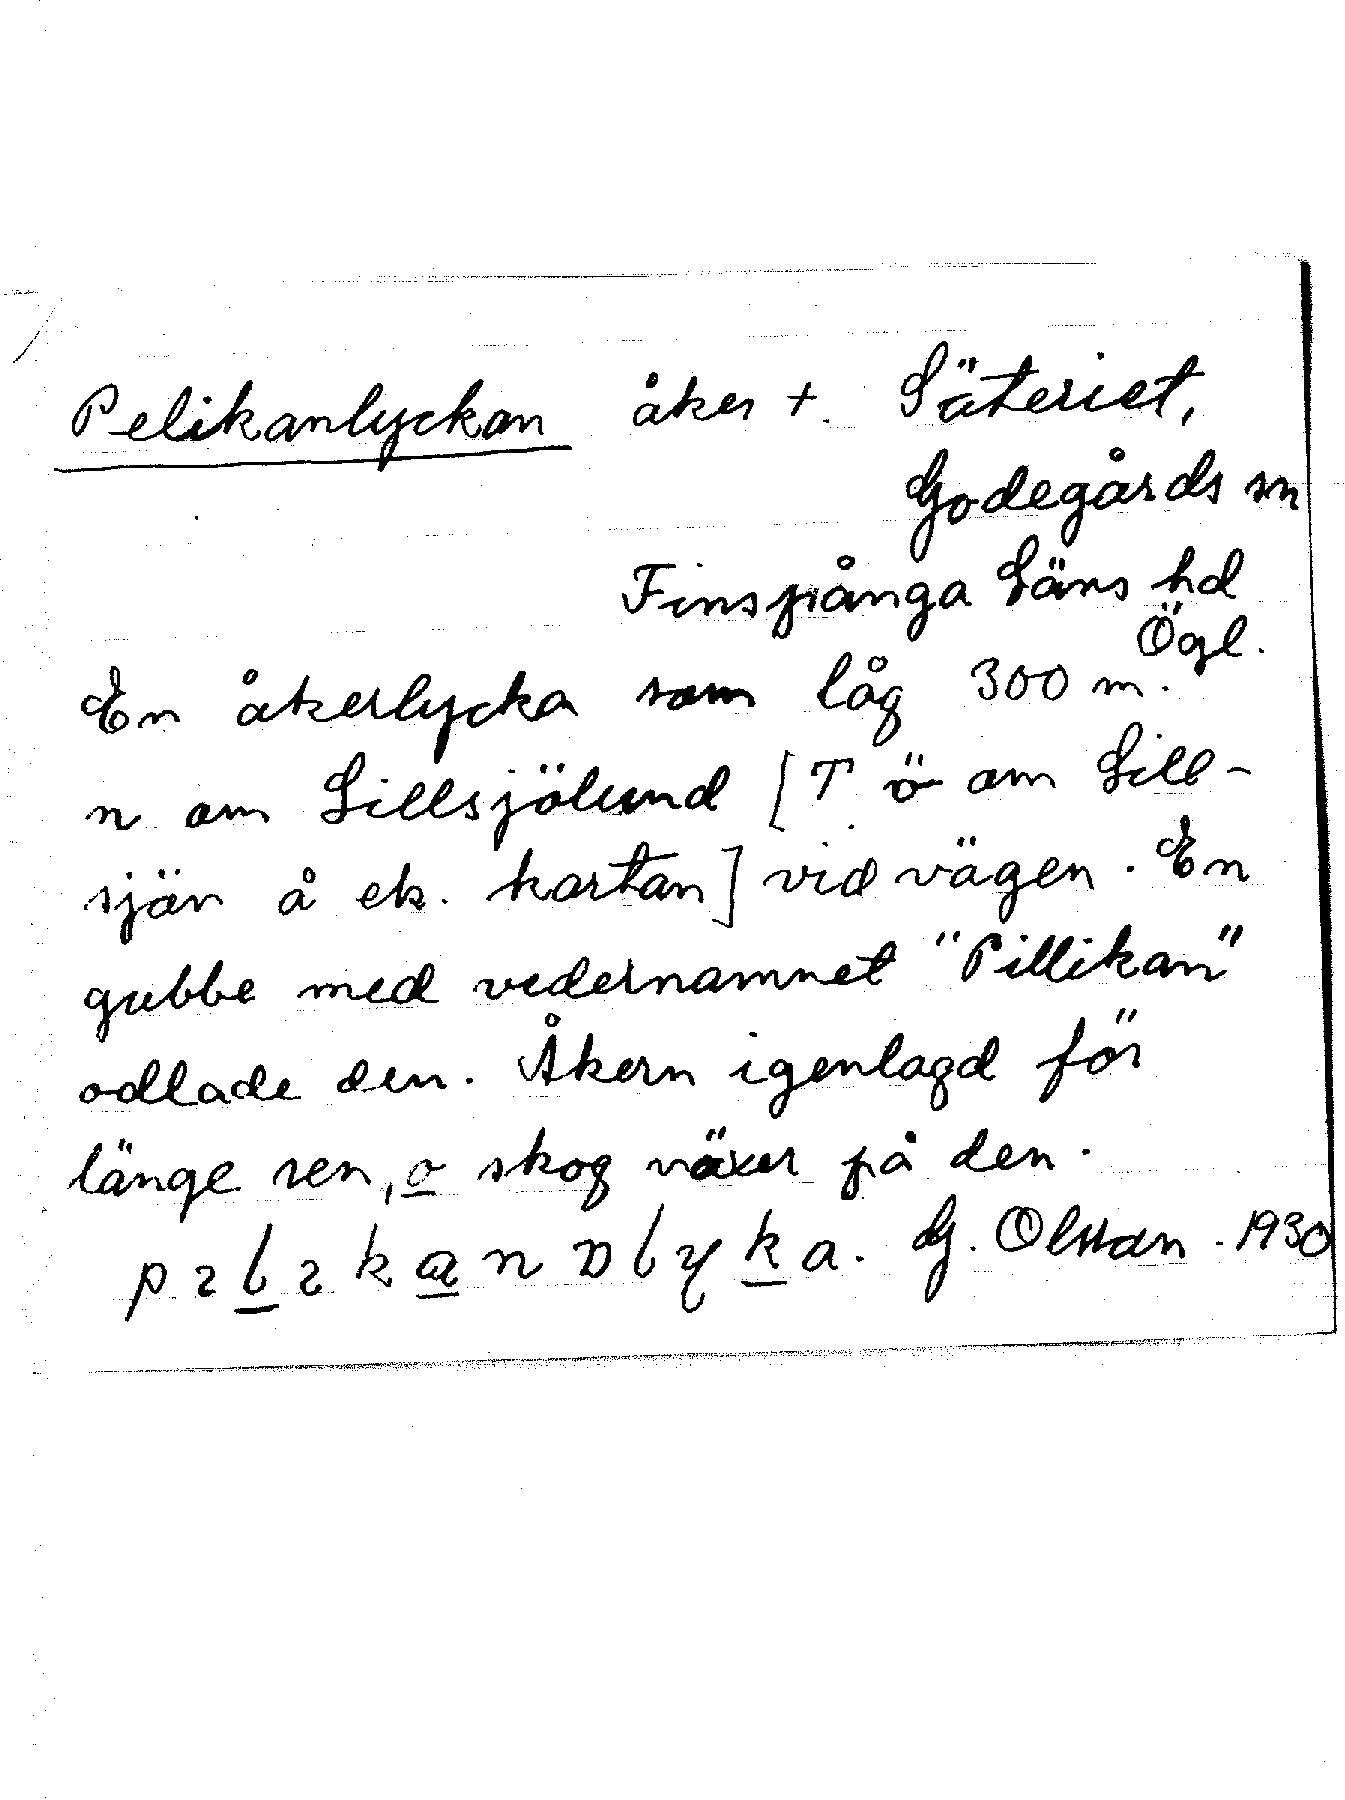 Pelikanlyckan åker +. Säteriet,
Godegårds sn
Finspånga Läns hd
Ögl.
En åkerlycka som låg 300 m.
n om Lillsjölund [T ö om Lill-
sjön å ek. kartan] vid vägen. En
gubbe med vedernamnet "Pillikan"
odlade den. Åkern igenlagd för
länge sen, o skog växer på den.
G. Olsson. 1930